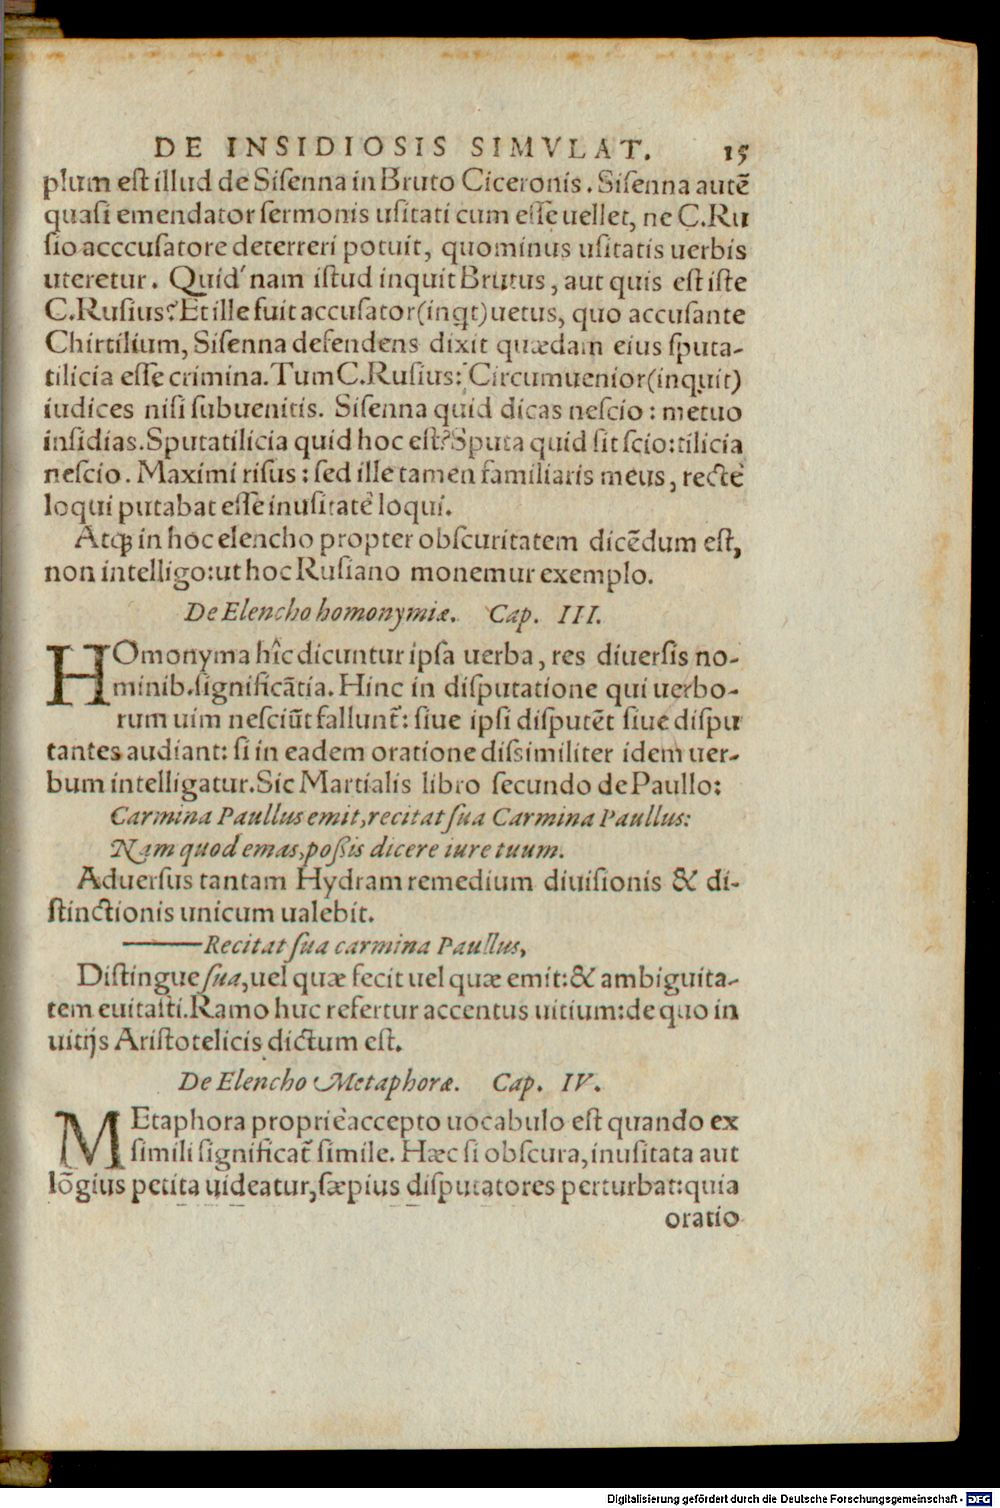 DE INSIDIOSIS SIMVLAT. 15
plum est illud de Sisenna in Bruto Ciceronis. Sisenna autē
quasi emendator sermonis usitati cum esse uellet, ne C.Ru
sio acccusatore deterreri potuit, quominus usitatis uerbis
uteretur. Quid' nam istud inquit Brutus, aut quis est iste
C.Rusius? Et ille fuit accusator (inqt) uetus, quo accusante
Chirtilium, Sisenna defendens dixit quædam eius sputa-
tilicia esse crimina. Tum C.Rusius: Circumuenior (inquit)
iudices nisi subuenitis. Sisenna quid dicas nescio: metuo
insidias. Sputatilicia quid hoc est? Sputa quid sit scio: tilicia
nescio. Maximi risus: sed ille tamen familiaris meus, rectè
loqui putabat esse inusitatè loqui.
Atq; in hoc elencho propter obscuritatem dicēdum est,
non intelligo: ut hoc Rusiano monemur exemplo.
De Elencho homonymiæ. Cap. III.
HOmonyma hîc dicuntur ipsa uerba, res diuersis no-
minib. significātia. Hinc in disputatione qui uerbo-
rum uim nesciūt fallunt̃: siue ipsi disputēt siue dispu
tantes audiant: si in eadem oratione dissimiliter idem uer-
bum intelligatur. Sic Martialis libro secundo de Paullo:
Carmina Paullus emit, recitat sua Carmina Paullus:
Nam quod emas, possis dicere iure tuum.
Aduersus tantam Hydram remedium diuisionis & di-
stinctionis unicum ualebit.
——Recitat sua carmina Paullus,
Distingue sua, uel quæ fecit uel quæ emit: & ambiguita-
tem euitasti. Ramo huc refertur accentus uitium: de quo in
uitijs Aristotelicis dictum est.
De Elencho Metaphoræ. Cap. IV.
MEtaphora propriè accepto uocabulo est quando ex
simili significat̃ simile. Hæc si obscura, inusitata aut
lōgius petita uideatur, sæpius disputatores perturbat: quia
oratio
Digitalisierung gefördert durch die Deutsche Forschungsgemeinschaft - DFG